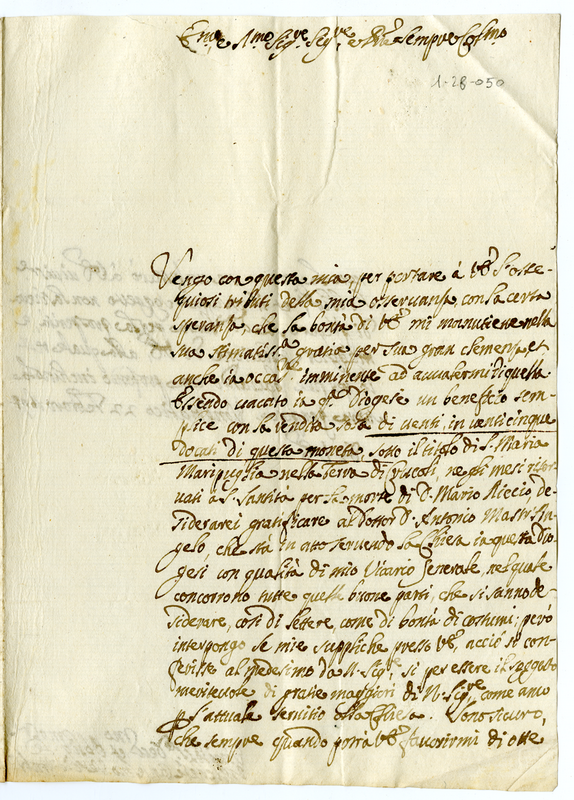 Em.mo e R.mo Sig.re Sig.re e P.ne sempre Col.mo
1-28-050
Vengo con questa mia, per portare à V.E. l'osse-
quiosi tributi della mia osservanza, con la certa
speranza, che la bontà di V.E. mi mantiene nella
sua stimatiss.a gratia per sua gran clemenza, et
anche in occas.ne imminente ad avvalermi di questa
Essendo vacato in q.ta Diogese un beneficio sem-
plice con la rendita sola di venti, in venticinque
Docati di questa moneta, sotto il titolo di S. Maria
Maripuglia nella Terra di Ruscoli, negli mesi riser-
vati à S. Santità per la morte di D. Mario Riccio, de-
siderarei gratificare al Dottor D. Antonio Mastr'An-
gelo, che stà in atto servendo la Chiesa in questa Dio-
gesi con qualità di mio Vicario Generale, nel quale
concorrono tutte quelle buone parti, che si sanno de-
siderare, così di lettere, come di bontà di costumi; però
interpongo le mie suppliche presso V.E., acciò si con-
ferisse al medesimo da N. Sig.re, sì per essere il soggetto
meritevole di gratie maggiori di N. Sig.re come anco
p l'attuale servitio della Chiesa. Sono sicuro,
che sempre quando potrà V.E. favorirmi di otte